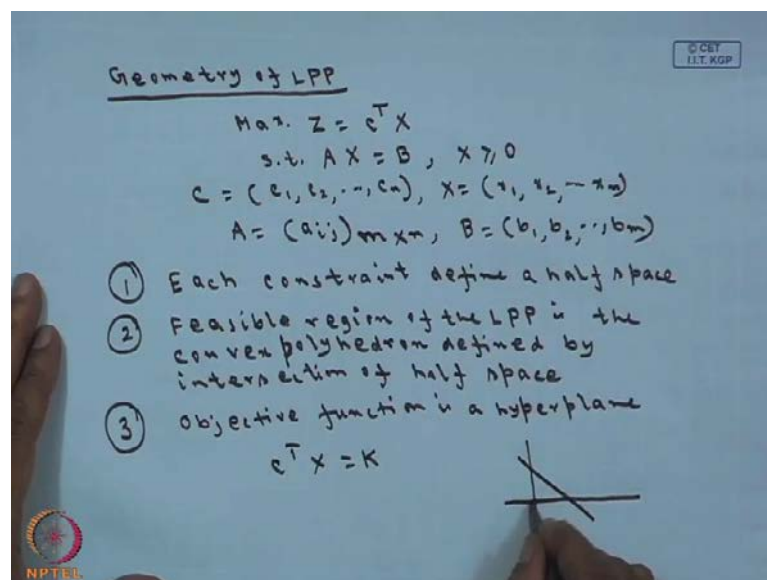 © CET
I.I.T. KGP
Geometry of LPP
Max. Z = c^T X
s.t. A X = B, X ≥ 0
C = (c₁, c₂, ..., cₙ), X = (x₁, x₂, --- xₙ)
A = (aᵢⱼ) m x n, B = (b₁, b₂, .., bₘ)
① Each constraint define a half space
② Feasible region of the LPP is the
convex polyhedron defined by
intersection of half space
③ Objective function is a hyperplane
c^T X = K
NPTEL